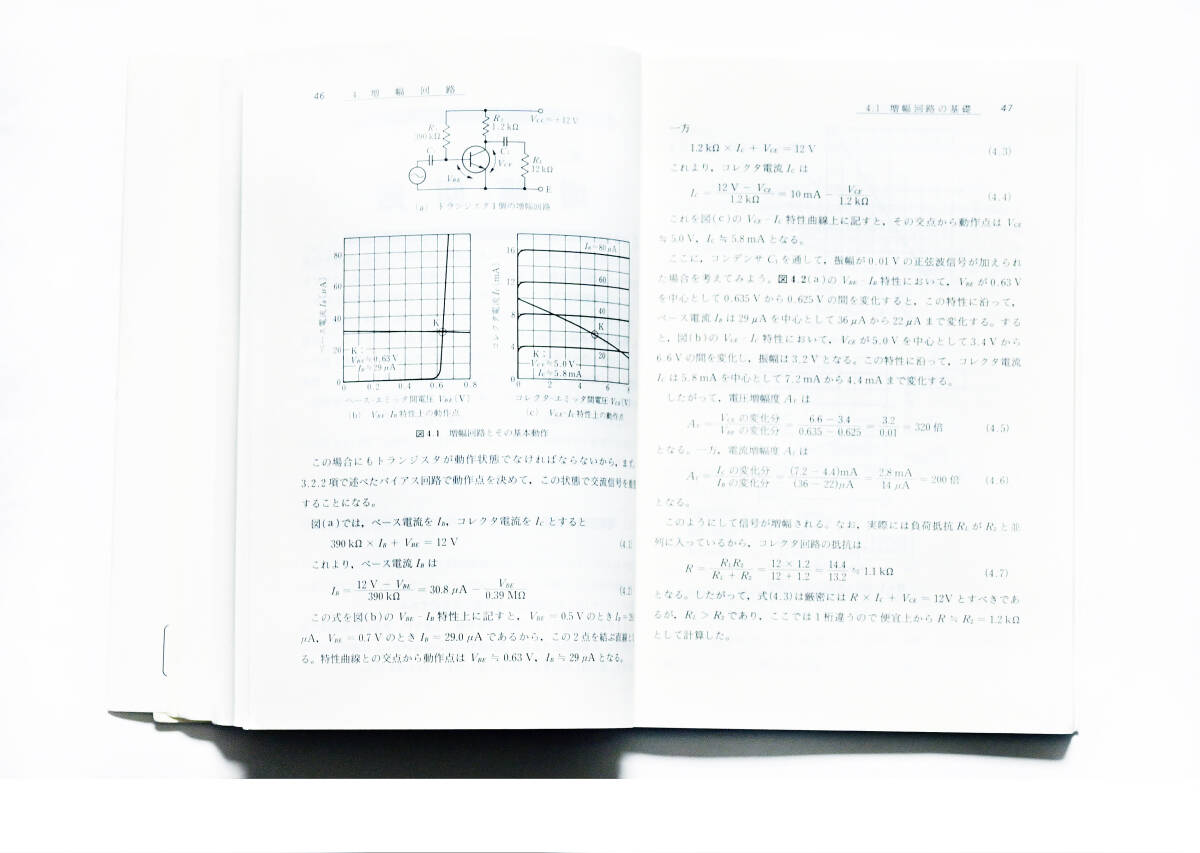 46 4. 増幅回路
R₁
390 kΩ
R₂
1.2 kΩ
V_CC=+12V
C₁
C₂
V_CE
V_BE
R_L
12 kΩ
E
(a) トランジスタ1個の増幅回路
80
60
40
20
0
ベース電流 I_B (μA)
K
K:
V_BE≒0.63V
I_B≒29μA
0 0.2 0.4 0.6 0.8
ベース-エミッタ間電圧 V_BE (V)
(b) V_BE-I_B 特性上の動作点
16
12
8
4
0
コレクタ電流 I_C (mA)
I_B=80 μA
60
40
20
K
K:
V_CE≒5.0V
I_C≒5.8mA
0 2 4 6 8
コレクタ-エミッタ間電圧 V_CE (V)
(c) V_CE-I_C 特性上の動作点
図4.1 増幅回路とその基本動作
この場合にもトランジスタが動作状態でなければならないから,まず,
3.2.2項で述べたバイアス回路で動作点を決めて,この状態で交流信号を
することになる。
図(a)では,ベース電流を I_B,コレクタ電流を I_C とすると
390 kΩ × I_B + V_BE = 12 V (4.1)
これより,ベース電流 I_B は
I_B = (12 V − V_BE)/390 kΩ = 30.8 μA − V_BE/0.39 MΩ (4.2)
この式を図(b)の V_BE-I_B 特性上に記すと, V_BE = 0.5 V のとき I_B =
μA, V_BE = 0.7 V のとき I_B = 29.0 μA であるから,この2点を結ぶ直線
る。特性曲線との交点から動作点は V_BE ≒ 0.63 V, I_B ≒ 29 μA となる。
4.1 増幅回路の基礎 47
一方
1.2 kΩ × I_C + V_CE = 12 V (4.3)
これより,コレクタ電流 I_C は
I_C = (12 V − V_CE)/1.2 kΩ = 10 mA − V_CE/1.2 kΩ (4.4)
これを図(c)の V_CE-I_C 特性曲線上に記すと,その交点から動作点は V_CE
≒ 5.0 V, I_C ≒ 5.8 mA となる。
ここに,コンデンサ C₁ を通して,振幅が 0.01 V の正弦波信号が加えられ
た場合を考えてみよう。図4.2(a)の V_BE-I_B 特性において, V_BE が 0.63 V
を中心として 0.635 V から 0.625 V の間を変化すると,この特性に沿って,
ベース電流 I_B は 29 μA を中心として 36 μA から 22 μA まで変化する。する
と,図(b)の V_CE-I_C 特性において, V_CE が 5.0 V を中心として 3.4 V から
6.6 V の間を変化し,振幅は 3.2 V となる。この特性に沿って,コレクタ電流
I_C は 5.8 mA を中心として 7.2 mA から 4.4 mA まで変化する。
したがって,電圧増幅度 A_V は
A_V = V_CE の変化分/V_BE の変化分 = (6.6 − 3.4)/(0.635 − 0.625) = 3.2/0.01 = 320 倍 (4.5)
となる。一方,電流増幅度 A_I は
A_I = I_C の変化分/I_B の変化分 = (7.2 − 4.4)mA/(36 − 22)μA = 2.8 mA/14 μA = 200 倍 (4.6)
となる。
このようにして信号が増幅される。なお,実際には負荷抵抗 R_L が R₂ と並
列に入っているから,コレクタ回路の抵抗は
R = R_L R₂/(R_L + R₂) = (12 × 1.2)/(12 + 1.2) = 14.4/13.2 ≒ 1.1 kΩ (4.7)
となる。したがって,式(4.3)は厳密には R × I_C + V_CE = 12V とすべきであ
るが, R_L > R₂ であり,ここでは1桁違うので便宜上から R ≒ R₂ = 1.2 kΩ
として計算した。